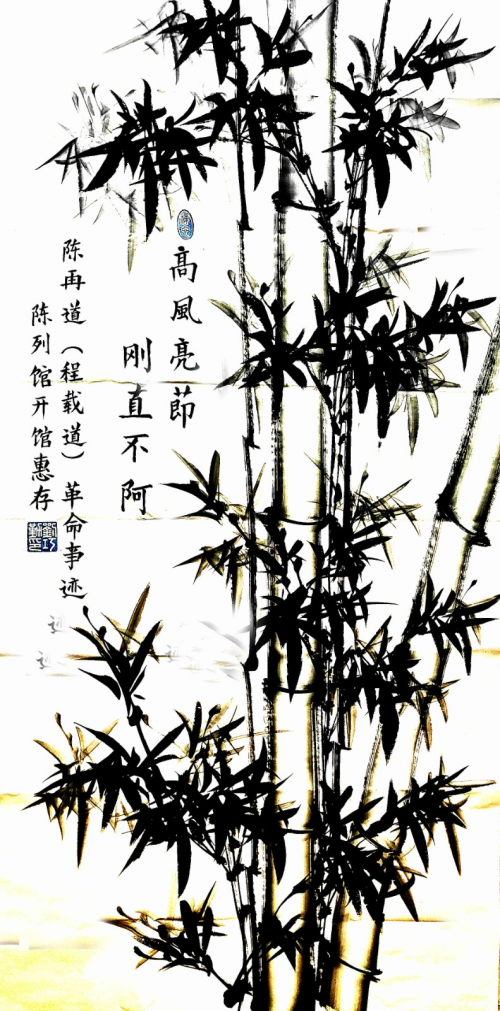 高風亮節
刚直不阿
陈再道（程载道）革命事迹
陈列馆开馆惠存